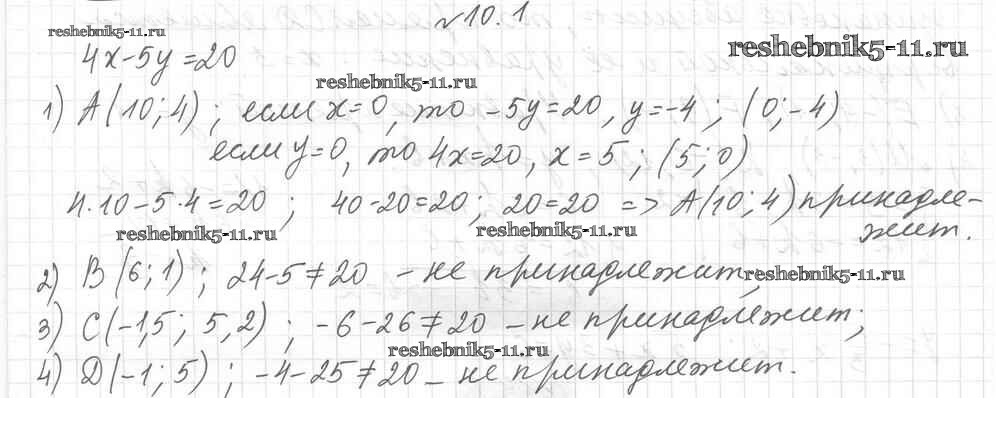 №10.1.
reshebnik5-11.ru
reshebnik5-11.ru
4x-5y=20
reshebnik5-11.ru
1) A(10;4); если x=0, то -5y=20, y=-4; (0;-4)
если y=0, то 4x=20, x=5; (5;0)
4·10-5·4=20; 40-20=20; 20=20 => A(10;4) принадле-
жит.
reshebnik5-11.ru
reshebnik5-11.ru
2) B(6;1); 24-5≠20 - не принадлежит;
reshebnik5-11.ru
3) C(-1,5; 5,2); -6-26≠20 - не принадлежит;
reshebnik5-11.ru
4) D(-1;5); -4-25≠20 - не принадлежит.